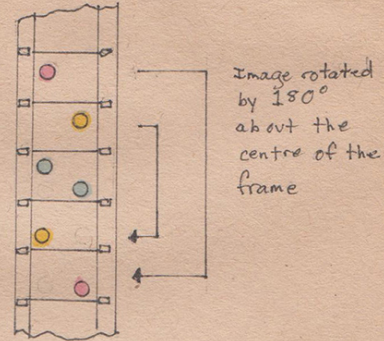 Image rotated
by 180°
about the
centre of the
frame